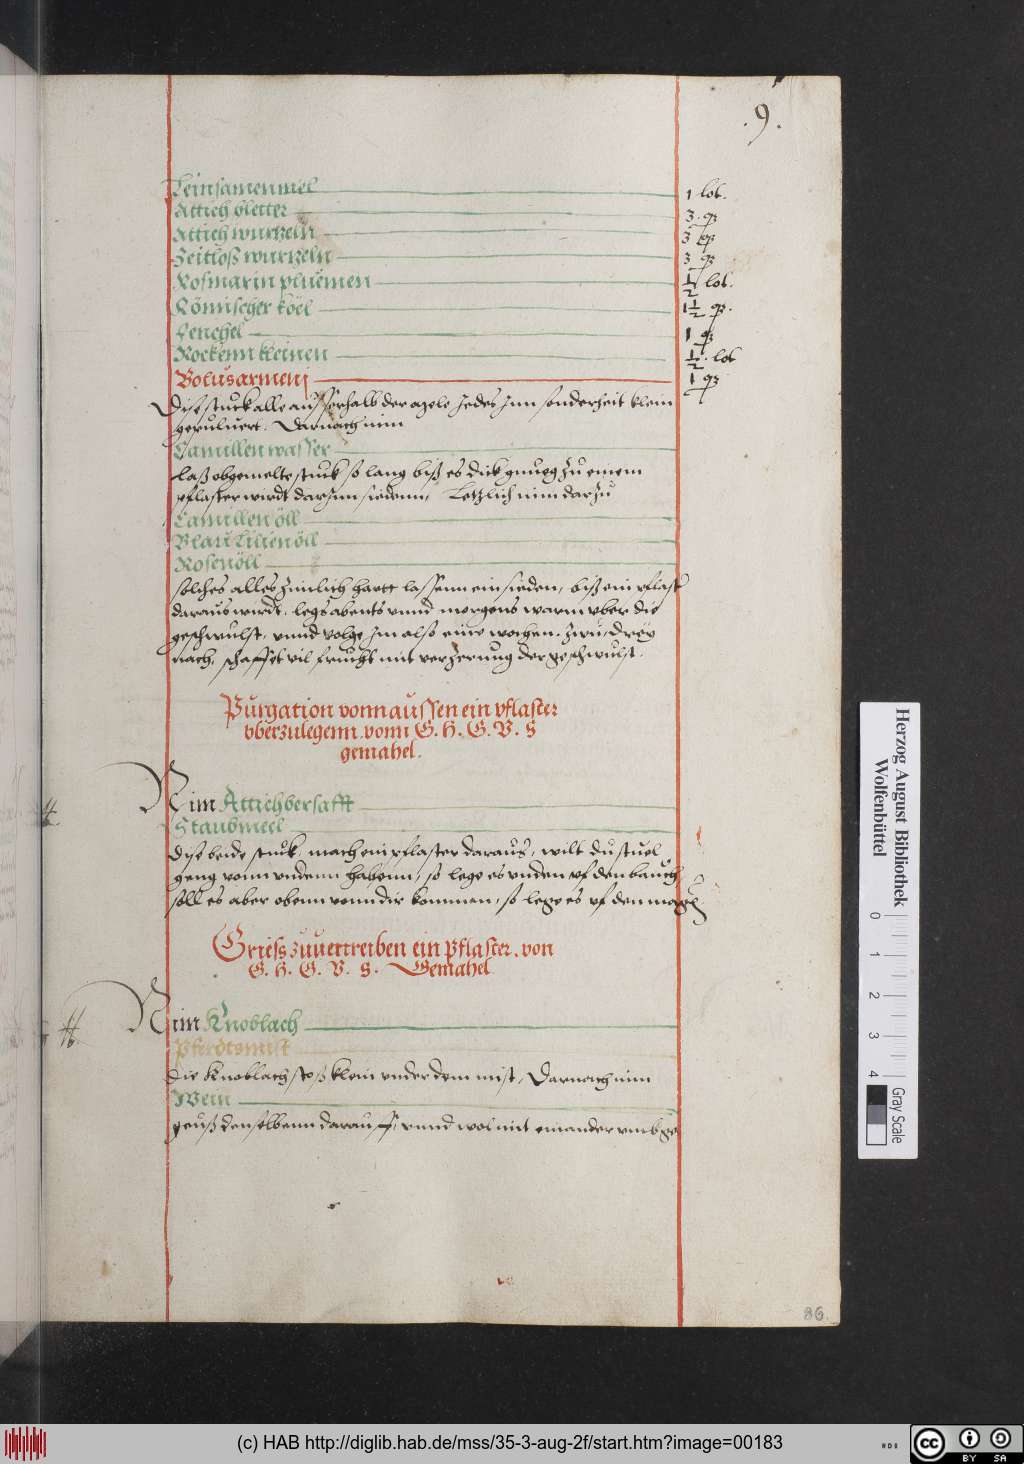 .9.
Leinsamenmel 1 lot.
Attich bletter 3. q
Attich wurtzeln 3 q
Zeitloß wurtzeln 3 q
Rosmarin pluemen ½ lot.
Römischer köel 1½ q.
Fenchel 1 q
Rockenn kleinen ½ lot
Bolusarmenj 1 q
Dise stuck alle ausserhalb der Jedes Jnn sonderheit klein
gepuluert. Darnach nim
Camillen wasser
laß obgemelte stuck so lang biß es dick gnueg zu einem
pflaster wirdt darjnn siedenn, Letzlich nim darzu
Camillen öll
Blau Lilien öll
Rosenöll
solches alles zimlich hartt lassenn einsieden, biß ein pflast
daraus wirdt. legs abents vnnd morgens warm vber die
geschwulst, vnnd volge Jm also eine wochen. zwu, drey
nach, schaffet vil frucht mit verzerung der geschwulst.
Purgation vonn aussen ein pflaster
vberzulegenn. vonn G. H. G. V. S
gemahel.
Nim Attichbersafft
Staubmeel
Dise beide stuck, mach ein pflaster daraus, wilt du stuel
geng vonn vndenn habenn, so lege es vnden vf den bauch,
soll es aber obenn vonn dir kommen, so lege es vf den magen.
Griess zuuertreiben ein pflaster. von
G. H. G. V. S. Gemahel
Nim Knoblach
Pferdtsmist
Die Knoblach stoß klein vnder dem mist, Darnach nim
Wein
geuß denselbenn darauff, vnnd wol mit einander vmbge
86.
Herzog August Bibliothek
Wolfenbüttel
0 1 2 3 4
Gray Scale
(c) HAB http://diglib.hab.de/mss/35-3-aug-2f/start.htm?image=00183
cc BY SA